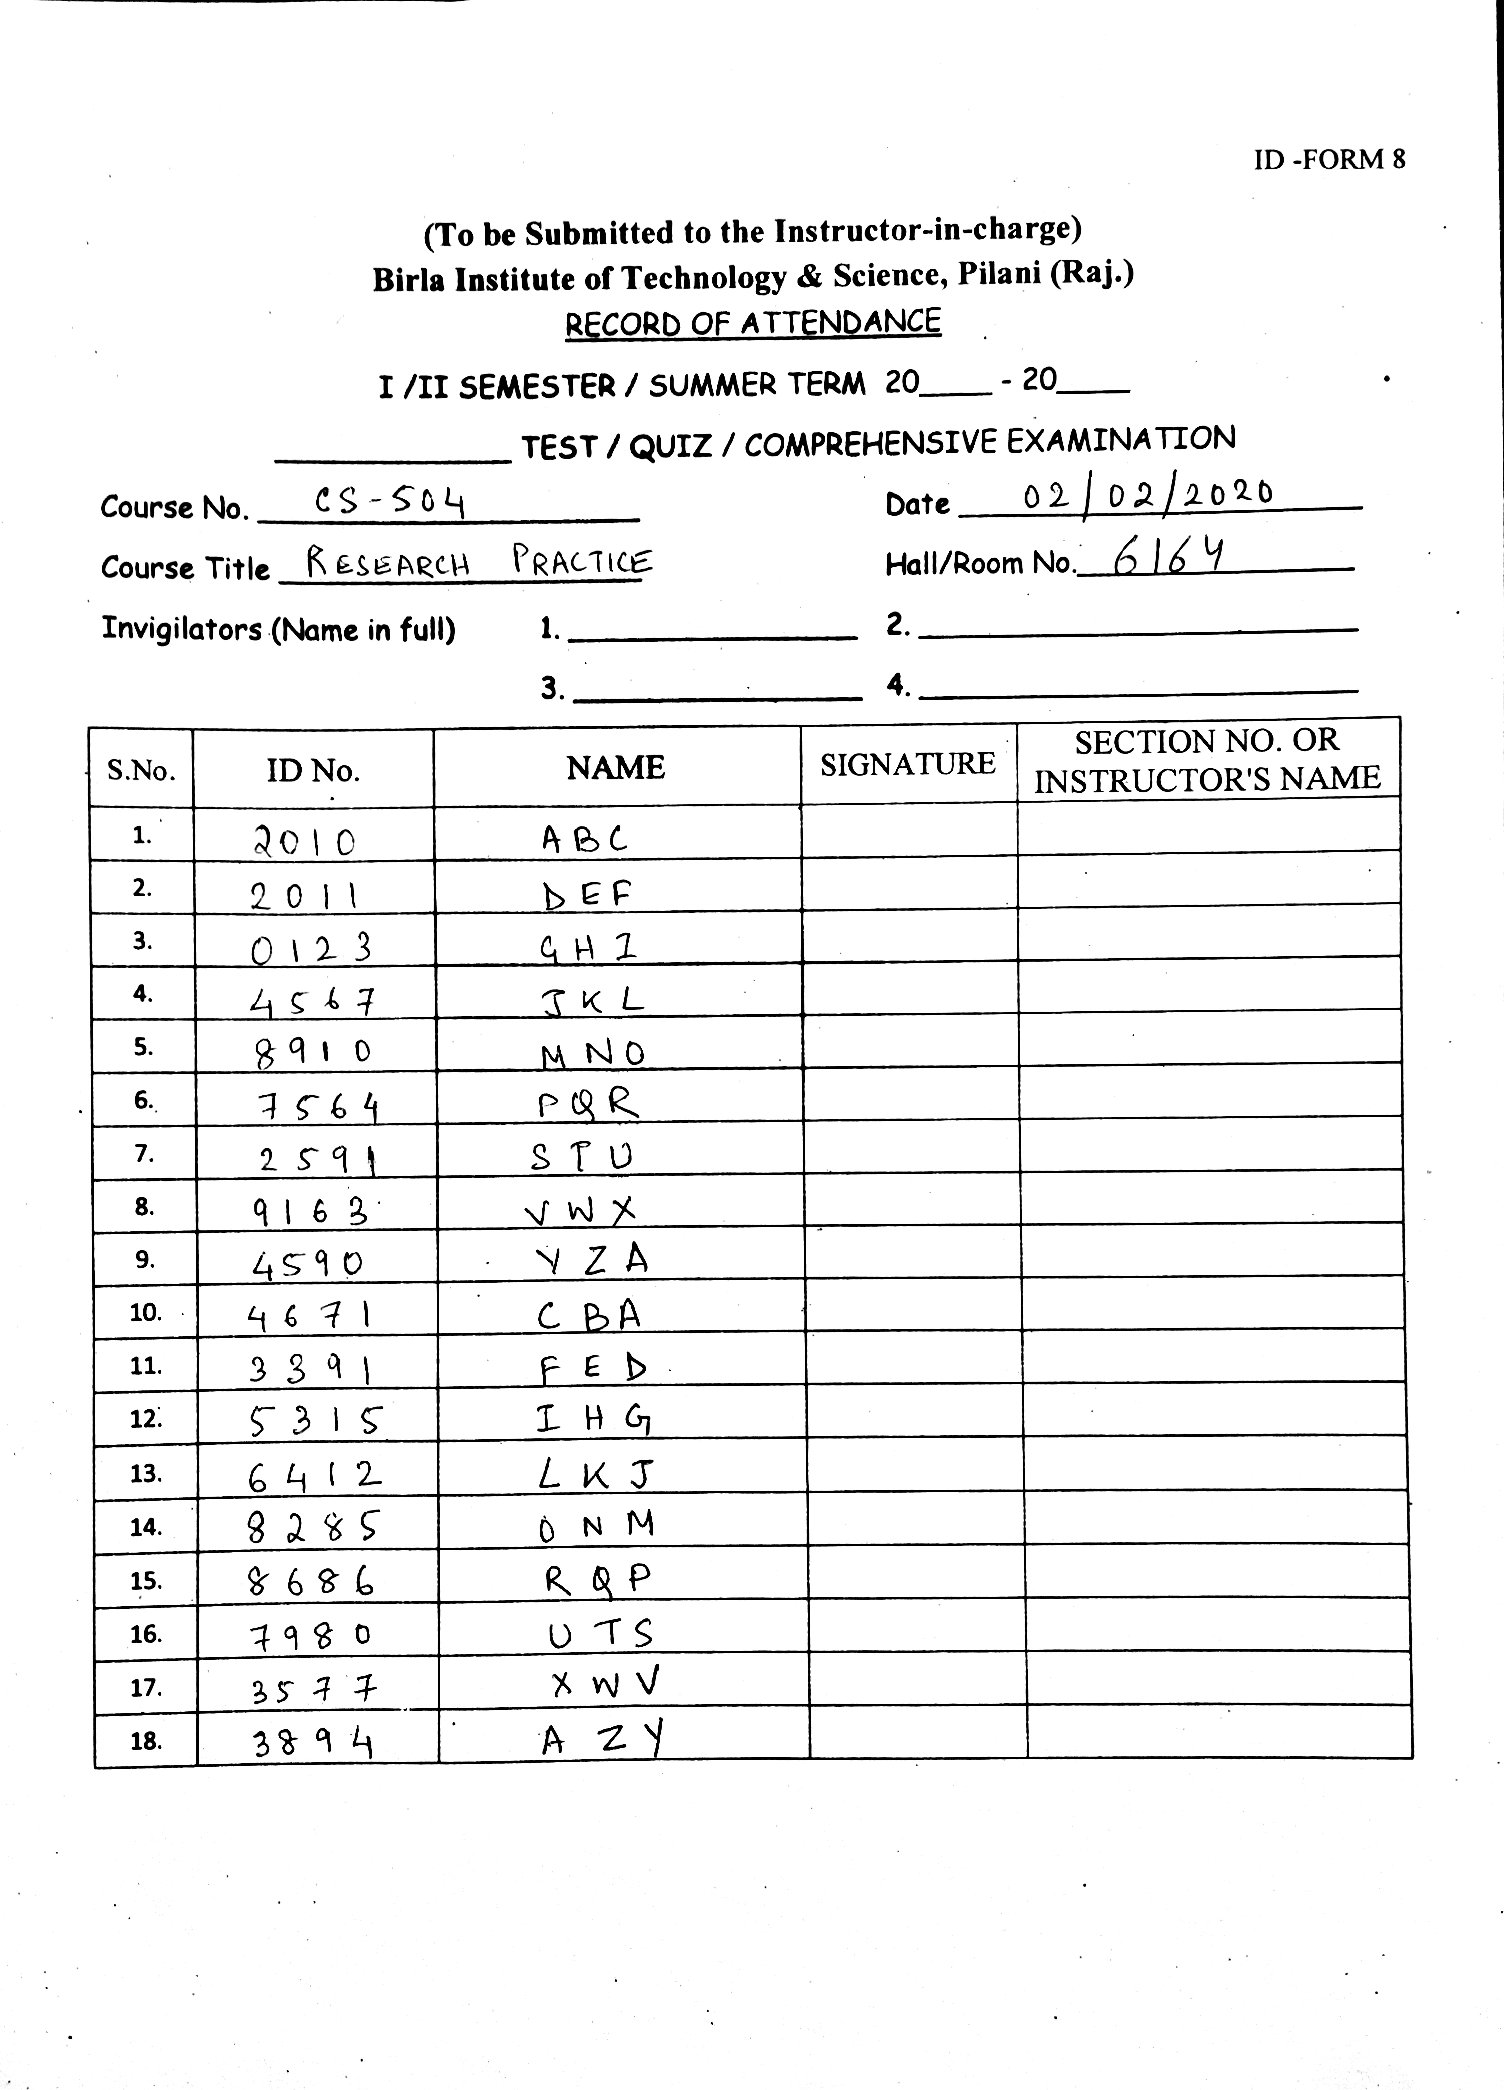 ID -FORM 8
(To be Submitted to the Instructor-in-charge)
Birla Institute of Technology & Science, Pilani (Raj.)
RECORD OF ATTENDANCE
I /II SEMESTER / SUMMER TERM 20____ - 20____
__________ TEST / QUIZ / COMPREHENSIVE EXAMINATION
Course No. CS-504 Date 02/02/2020
Course Title RESEARCH PRACTICE Hall/Room No. 6164
Invigilators (Name in full) 1. __________ 2. __________
3. __________ 4. __________
S.No. ID No. NAME SIGNATURE SECTION NO. OR INSTRUCTOR'S NAME
1. 2010 ABC
2. 2011 DEF
3. 0123 GHI
4. 4567 JKL
5. 8910 MNO
6. 7564 PQR
7. 2591 STU
8. 9163 VWX
9. 4590 YZA
10. 4671 CBA
11. 3391 FED
12. 5315 IHG
13. 6412 LKJ
14. 8285 ONM
15. 8686 RQP
16. 7980 UTS
17. 3577 XWV
18. 3894 AZY